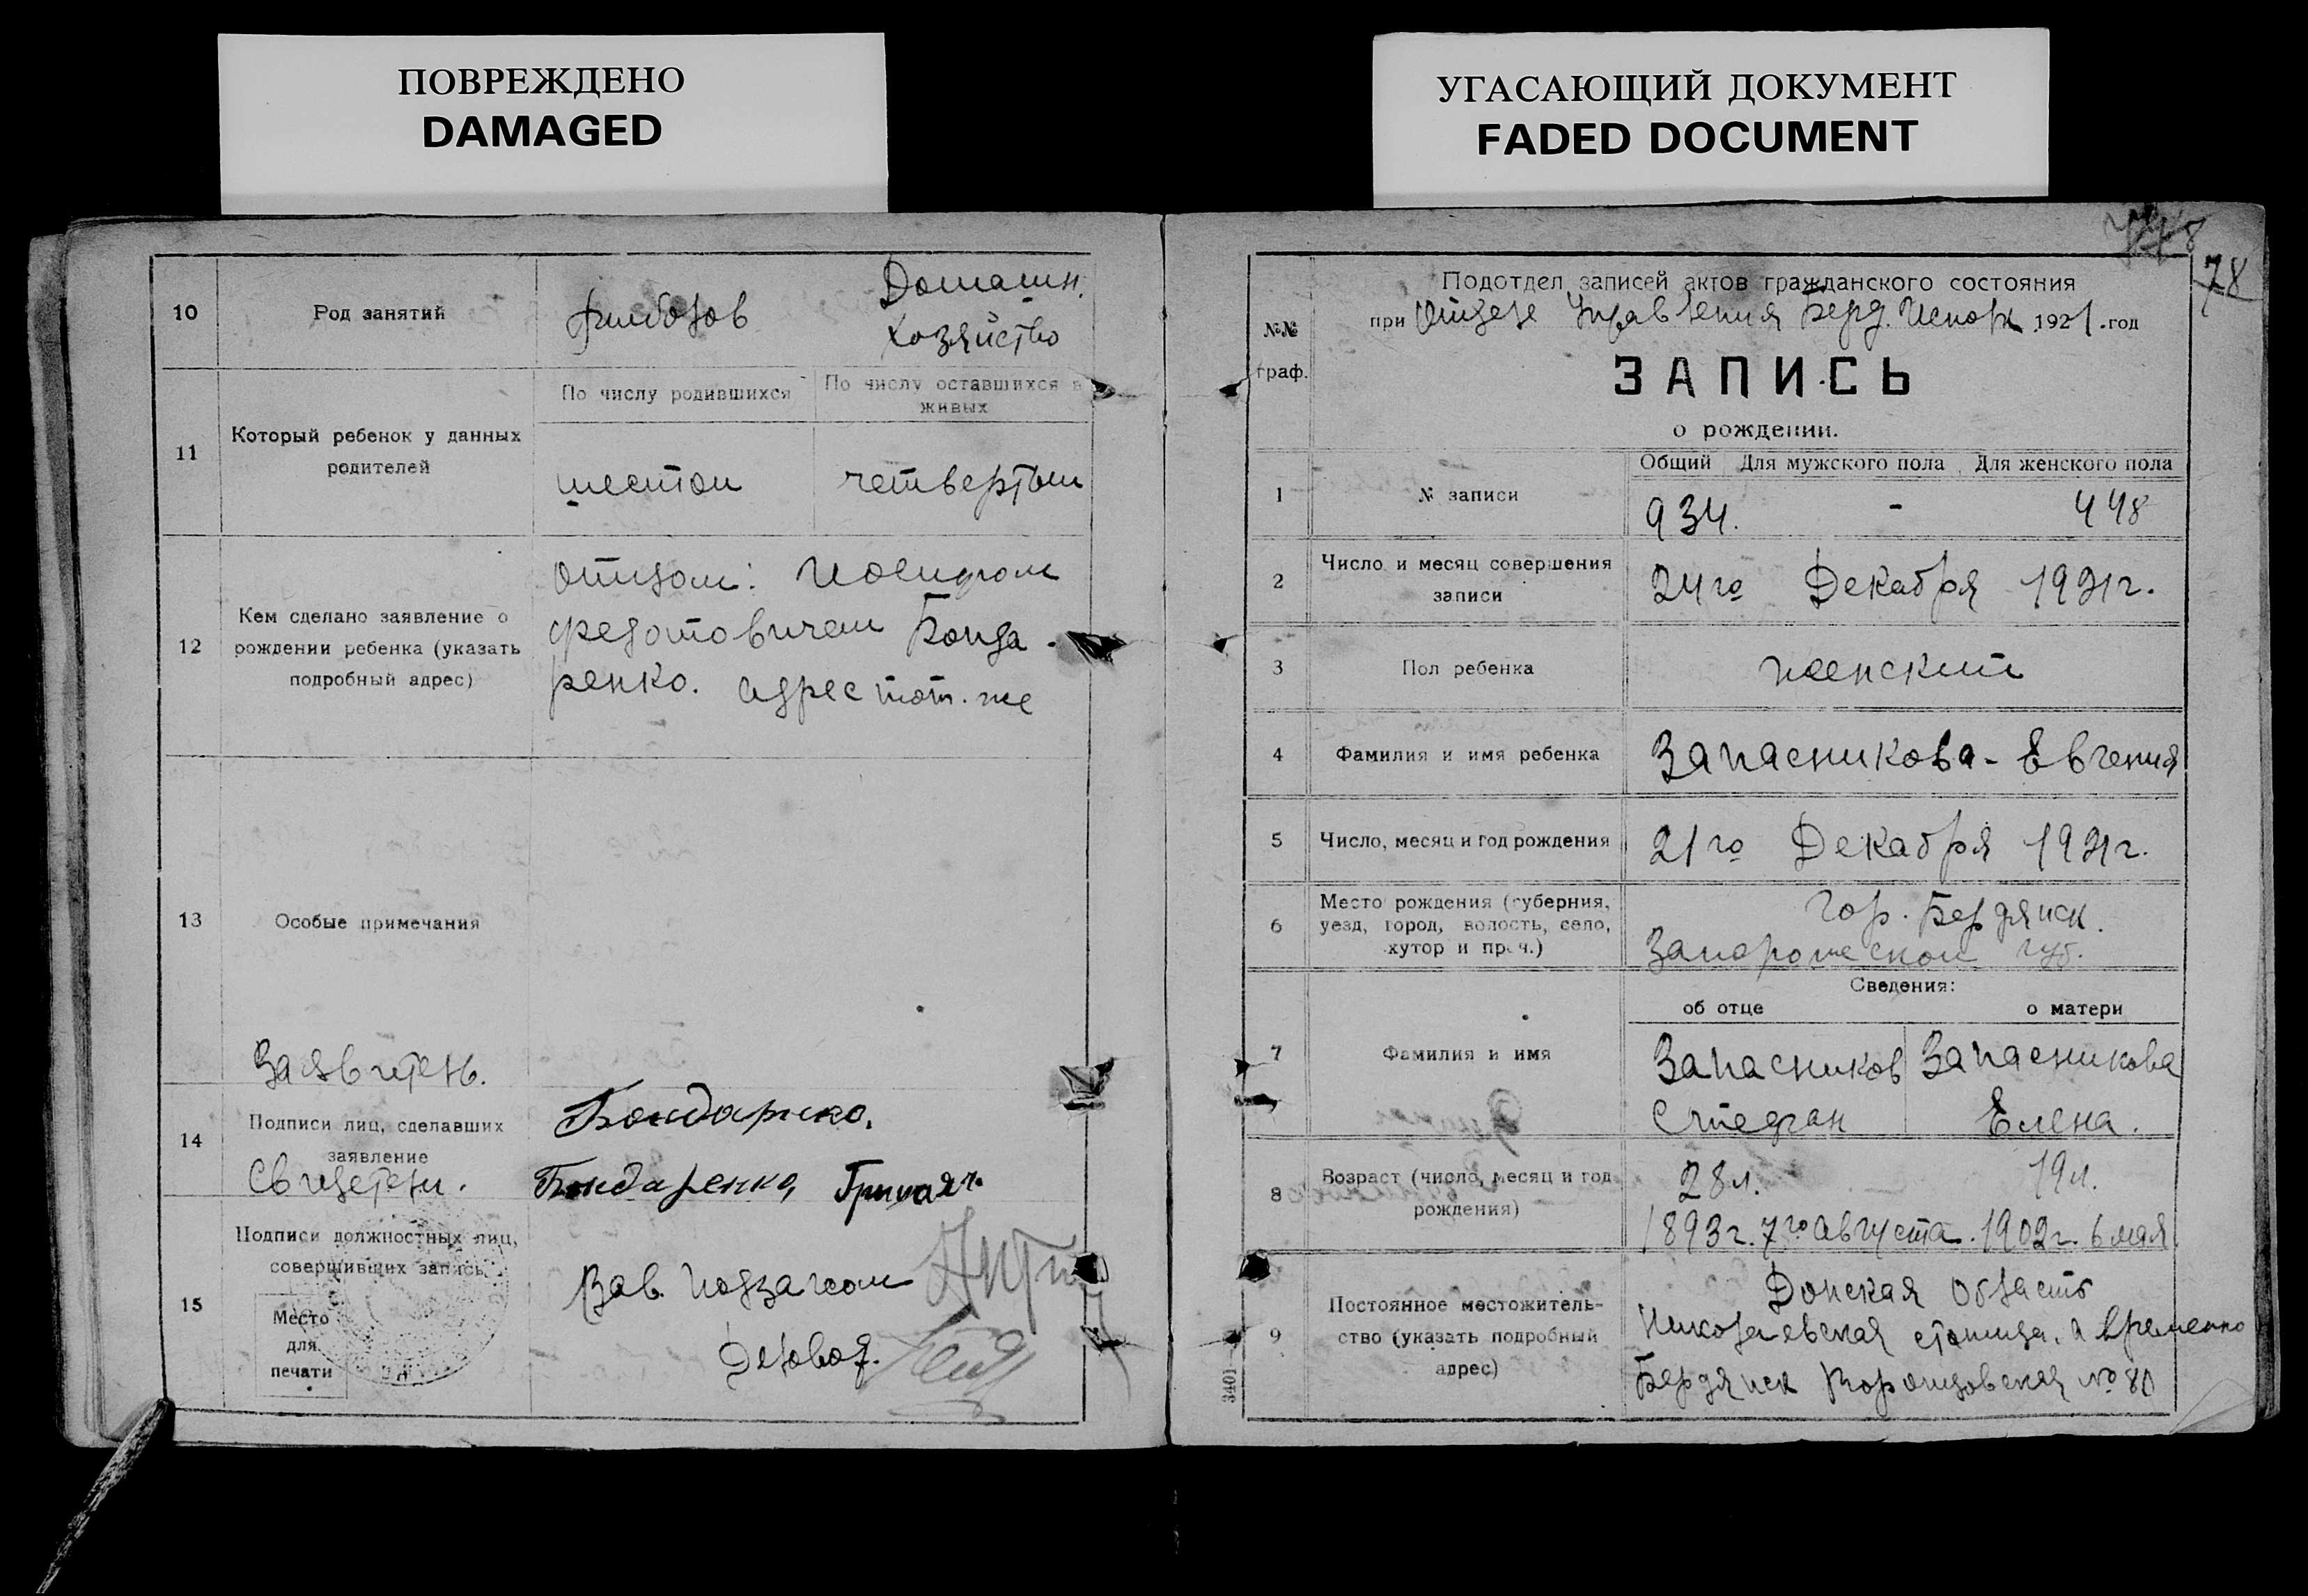 ПОВРЕЖДЕНО
DAMAGED
10
Род занятий
рыболов
Домашн.
хозяйство
11
Который ребенок у данных
родителей
По числу родившихся
По числу оставшихся в
живых
шестой
четвертый
12
Кем сделано заявление о
рождении ребенка (указать
подробный адрес)
отцом:
федотовичем Бонда-
ренко. адрес тот-же
13
Особые примечания
Заявитель.
14
Подписи лиц, сделавших
заявление
Свидетели.
Бондаренко.
Бондаренко,
15
Подписи должностных лиц,
совершивших запись
Место
для
печати
Зав. подзагсом
Деловод.
УГАСАЮЩИЙ ДОКУМЕНТ
FADED DOCUMENT
78
№№
граф.
Подотдел записей актов гражданского состояния
при Отделе Управления Берд. Исполк 1921. год
ЗАПИСЬ
о рождении.
1
№ записи
Общий
Для мужского пола
Для женского пола
934.
-
448
2
Число и месяц совершения
записи
24го Декабря 1921г.
3
Пол ребенка
женский
4
Фамилия и имя ребенка
Запасникова - Евгения
5
Число, месяц и год рождения
21го Декабря 1921г.
6
Место рождения (губерния,
уезд, город, волость, село,
хутор и проч.)
Гор. Бердянск.
Запорожской губ.
Сведения:
об отце
о матери
7
Фамилия и имя
Запасников
Стефан
Запасникова
Елена.
8
Возраст (число, месяц и год
рождения)
28л.
1893г. 7го августа.
19л.
1902г. 6 мая
9
Постоянное местожитель-
ство (указать подробный
адрес)
Донская Область
Николаевская станица, а временно
Бердянск Воронцовская № 80
3401